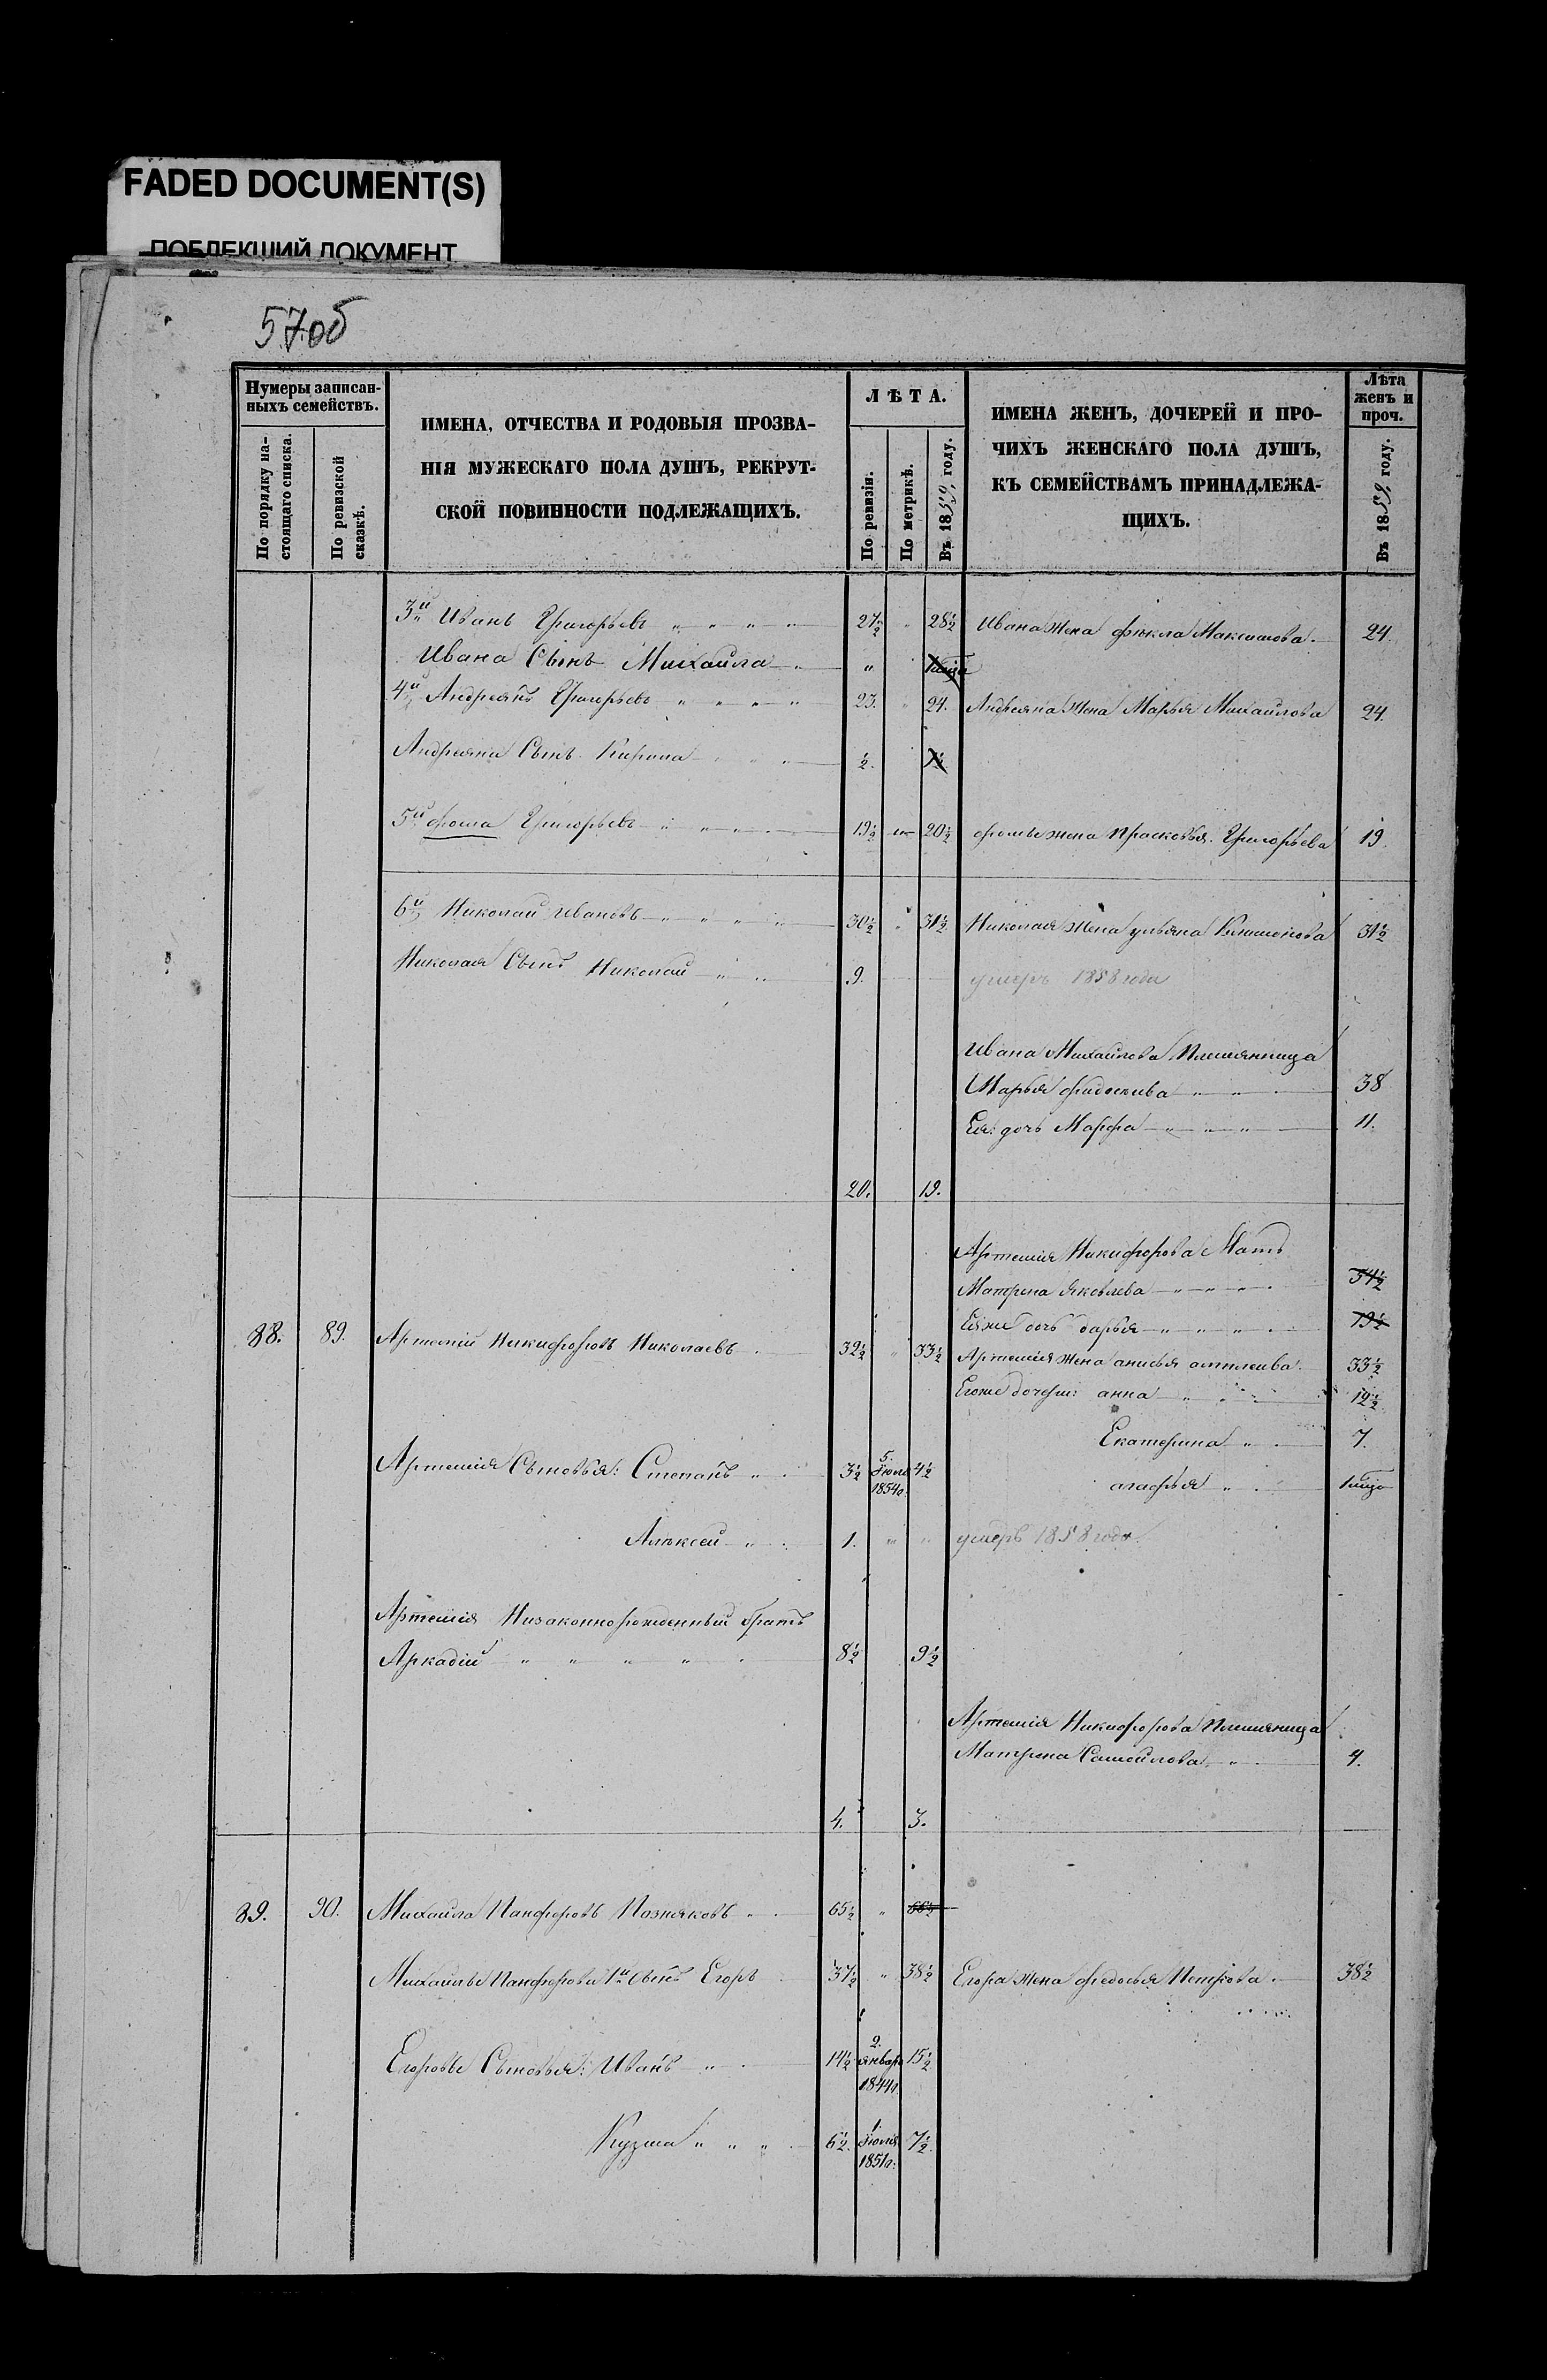 FADED DOCUMENT(S)
ПОБЛЕКШИЙ ДОКУМЕНТ
57об
Нумеры записан-
ныхъ семействъ.
По порядку на-
стоящаго списка.
По ревизской
сказкѣ.
ИМЕНА, ОТЧЕСТВА И РОДОВЫЯ ПРОЗВА-
НІЯ МУЖЕСКАГО ПОЛА ДУШЪ, РЕКРУТ-
СКОЙ ПОВИННОСТИ ПОДЛЕЖАЩИХЪ.
ЛѢТА.
По ревизіи.
По метрикѣ.
Въ 1859 году.
ИМЕНА ЖЕНЪ, ДОЧЕРЕЙ И ПРО-
ЧИХЪ ЖЕНСКАГО ПОЛА ДУШЪ,
КЪ СЕМЕЙСТВАМЪ ПРИНАДЛЕЖА-
ЩИХЪ.
Лѣта
женъ и
проч.
Въ 1859 году.
3й Иванъ Григорьевъ " " " " 27½ " 28½ Ивана жена Фекла Максимова. 24.
Ивана Сынъ Михайла " "
4й Андреянъ Григорьевъ " " " " 23. " 24. Андреяна жена Марья Михайлова 24.
Андреяна Сынъ Кирила ½. 1½
5й Фома Григорьевъ " " " 19½ 20½ Фомы жена Прасковья Григорьева 19.
6й Николай Ивановъ " " " " 30½ " 31½ Николая жена Ульяна 31½
Николая Сынъ Николай " " 9. умеръ 1858 года
Ивана Михайлова Племянница
Марья 38
Ея: дочь Марфа " " " 11.
20. 19.
Артемія Никифорова Мать
Матрена Яковлева " " " 54½
Ея же дочь Дарья " " " 19½
88. 89. Артемій Никифоровъ Николаевъ 32½ " 33½ Артемія жена Анисья 33½
Егоже дочери: Анна " " 12½
Екатерина " 7.
Артемія Сыновья: Степанъ " 3½ 5 Іюля 1854г. 4½ Агафья "
Алексей " 1. " " умеръ 1858 года.
Артемія Незаконнорожденный братъ
Аркадій " " " " 8½ 9½
Артемія Никифорова Племянница
Матрена Самойлова " 4.
4. 3.
89. 90. Михайла Панфоровъ Позняковъ " 65½ " 66½
Михайлы Панфорова 1й сынъ Егоръ 37½ " 38½ Егора жена Федосья Петрова. 38½
Егоровы Сыновья: Иванъ " 14½ 2 Января 1844г. 15½
Кузма " " " 6½. 1 Іюля 1851г: 7½.